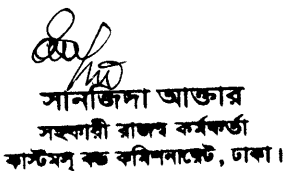 সানজিদা আক্তার
সহকারী রাজস্ব কর্মকর্তা
কাস্টমস্ বন্ড কমিশনারেট, ঢাকা।